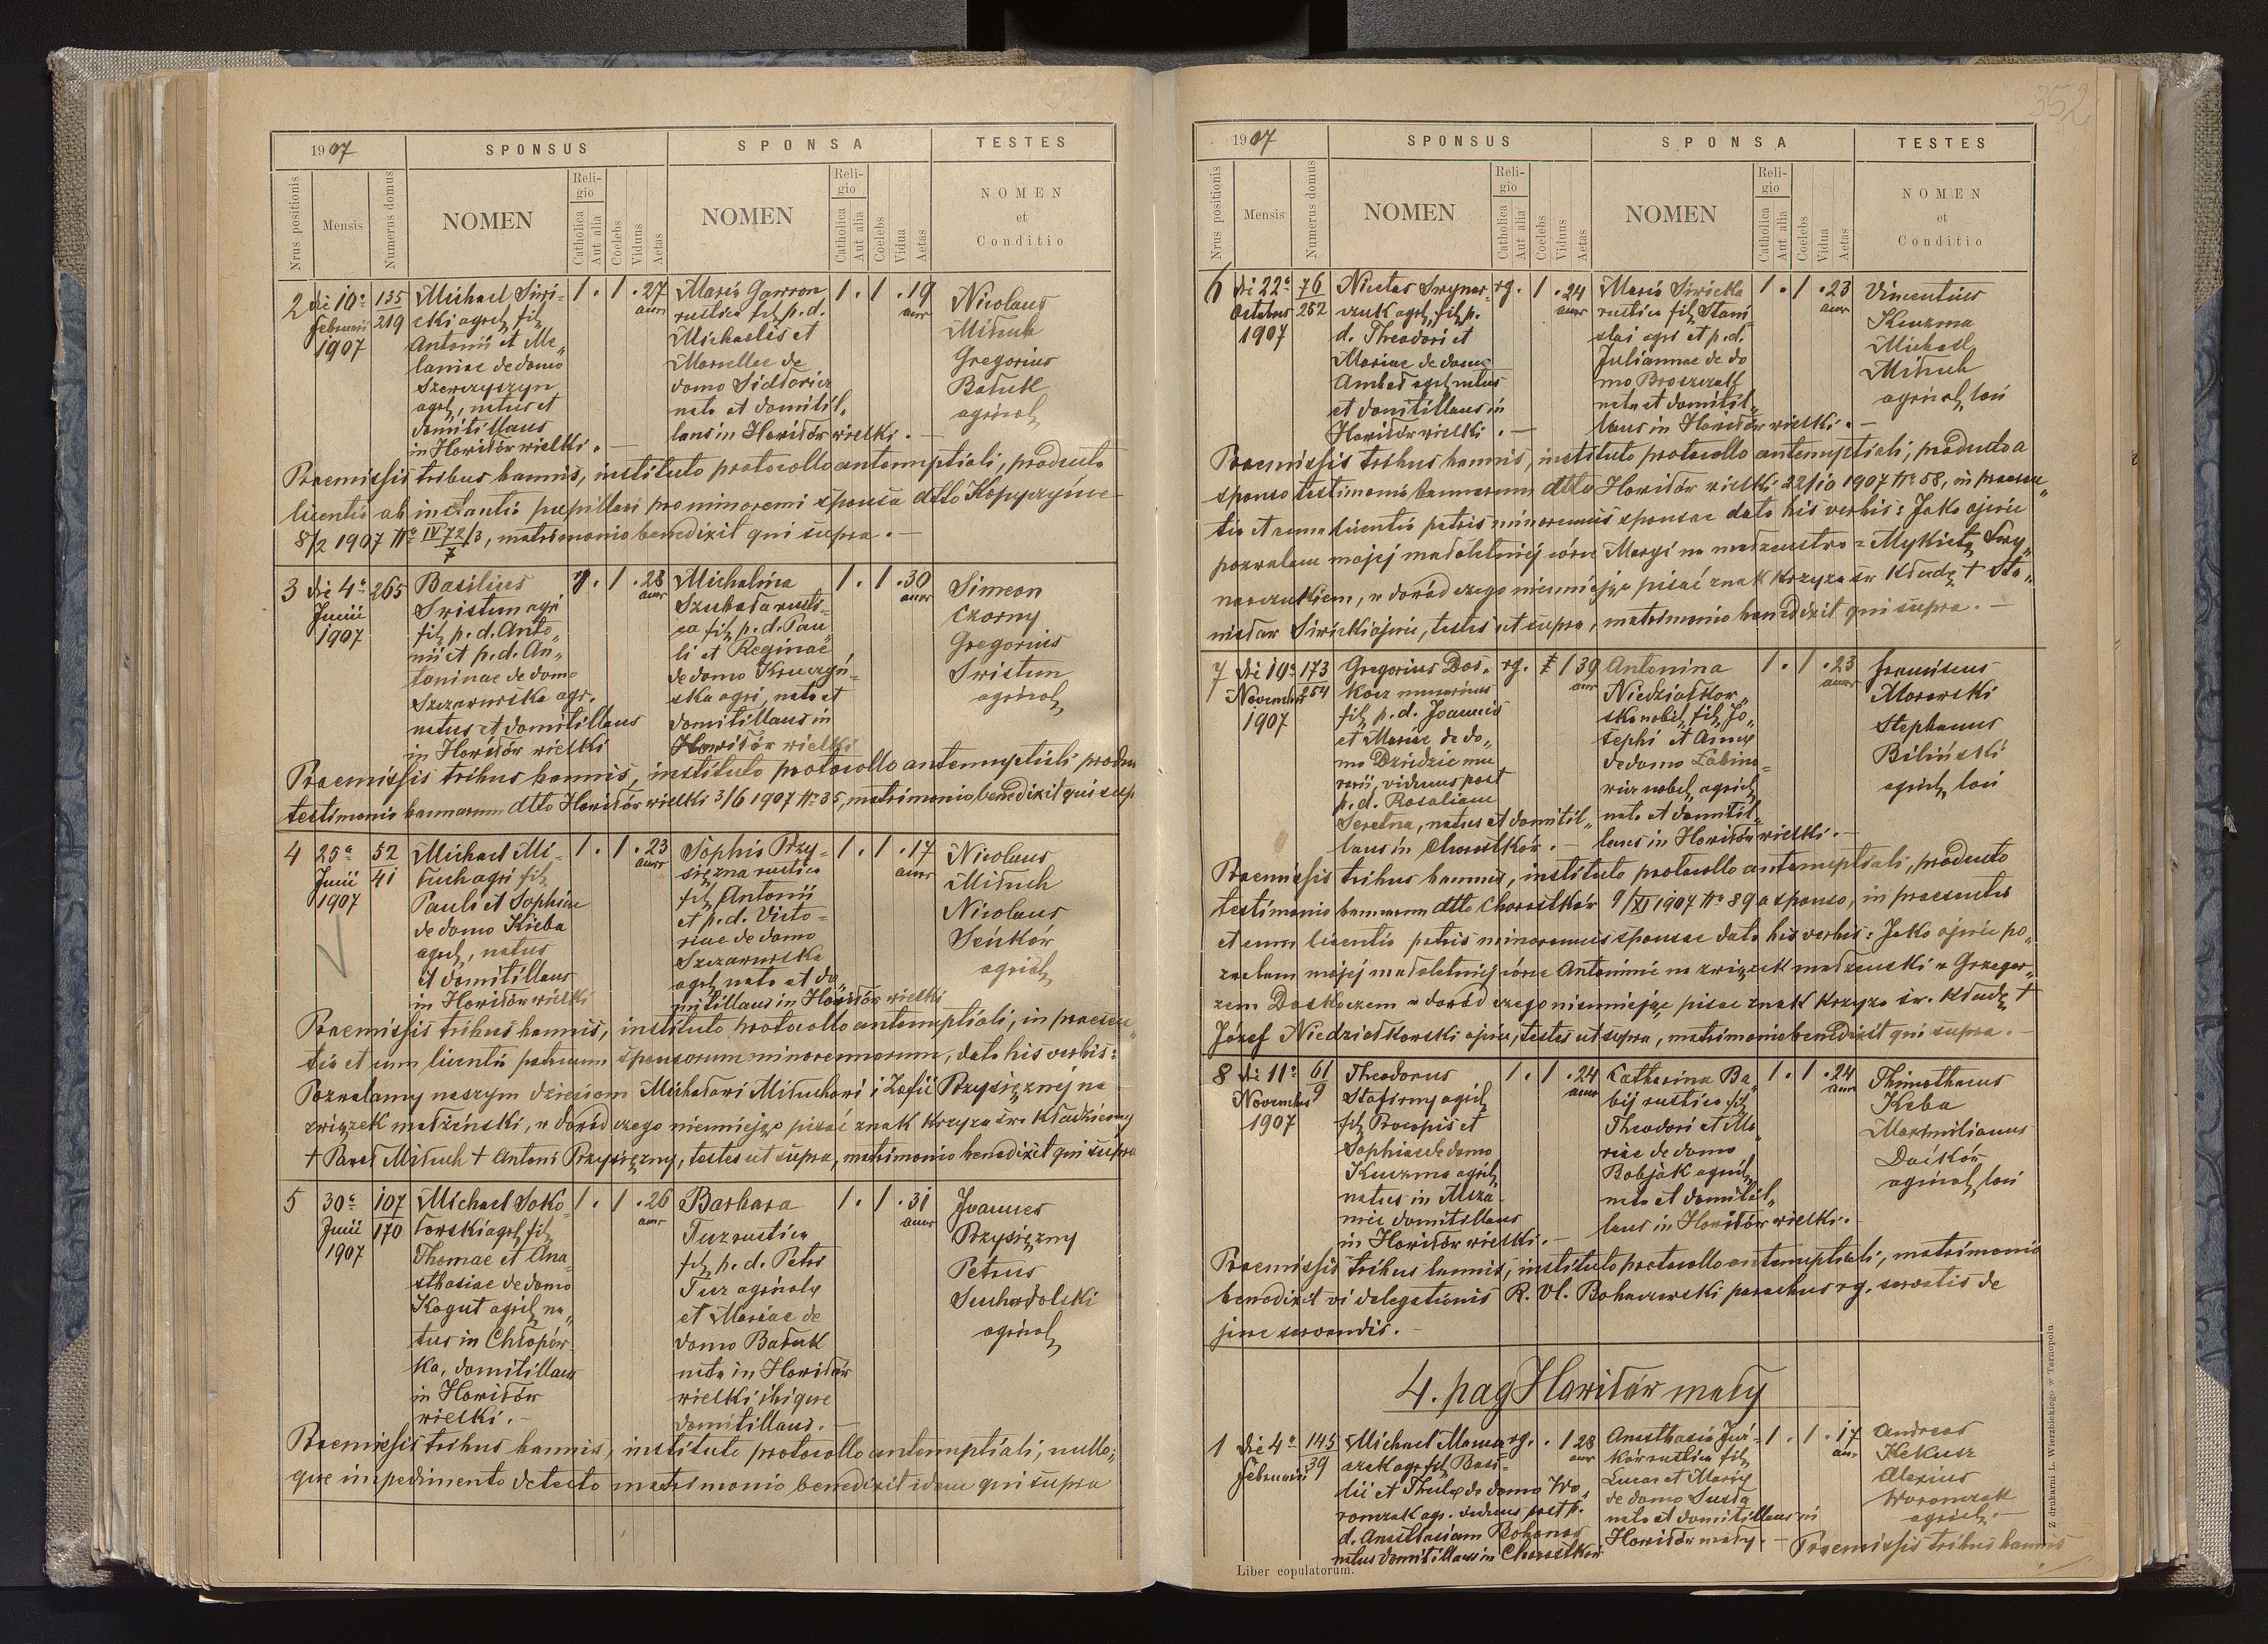 1907
SPONSUS
SPONSA
TESTES
Nrus positionis
Mensis
Numerus domus
NOMEN
Religio
Catholica
Aut alia
Coelebs
Viduus
Aetas
NOMEN
Religio
Catholica
Coelebs
Vidua
Aetas
NOMEN
et
Conditio
2 die 10a Februarii 1907
135
219
Michael Siwi-
cki agric. fil.
Antonii et Me-
laniae de domo
Szewczyszyn
agric., natus et
domitillans
in Howiłów wielki.
1 . 1 . 27 annor
Maria Gawron
rustica fil. p. d.
Michaelis et
Marcellae de
domo Sidłowicz
nata et domitil-
lans in Howiłów wielki.
1 . 1 . 19 annor
Nicolaus
Mituch
Gregorius
Batuk
agricol.
Praemissis tribus bannis, instituto protocollo antenuptiali, producto
licentia ab instantia pupillari pro minoremi sponsa dtto Kopyczyńce
8/2 1907 No IV 72/7 /3, matrimonio benedixit qui supra.
3 die 4a Junii 1907
265
Basilius
Swistun agri
fil. p. d. Anto-
nii et p. d. An-
toninae de domo
Szczawurska agr.
natus et domitillans
in Howiłów wielki
1 . 28 annor
Michalina
Szubata rusti-
ca fil. p. d. Pau-
li et Reginae
de domo Kruczyń-
ska agri, nata et
domitillans in
Howiłów wielki
1 . 1 . 30 annor
Simeon
Czorny
Gregorius
Swistun
agricol.
Praemissis tribus bannis, instituto protocollo antenuptiali produ
testimonio bannorum dtto Howiłów wielki 3/6 1907 No 35, matrimonio benedixit qui sup
4 25a Junii 1907
52
41
Michael Mi-
tuch agri fil.
Pauli et Sophiae
de domo Kieba
agric., natus
et domitillans
in Howiłów wielki
1 . 1 . 23 annor
Sophia Przy-
siężna rustica
fil. Antonii
et p. d. Victo-
riae de domo
Szczawurska
agric. nata et do-
mitillans in Howiłów wielki
1 . 1 . 17 annor
Nicolaus
Mituch
Nicolaus
Seńków
agricol.
Praemissis tribus bannis, instituto protocollo antenuptiali, in praesen-
tia et cum licentia patrum sponsorum minorennorum, data his verbis:
Pozwalamy naszym dzieciom Michałowi Mituchowi i Zofii Przysiężnej na
związek małżeński, w dowód czego nieumiejąc pisać znak krzyża św. kładziemy
+ Paweł Mituch + Antoni Przysiężny, testes ut supra, matrimonio benedixit qui supra
5 30a Junii 1907
107
170
Michael Soko-
łowski agric. fil.
Thomae et Ana-
sthasiae de domo
Kogut agric. na-
tus in Chłopów-
ka, domitillans
in Howiłów
wielki.
1 . 1 . 26 annor
Barbara
Tuz rustica
fil. p. d. Petri
Tuz agricolae
et Mariae de
domo Batuk
nata in Howiłów
wielki ibique
domitillans.
1 . 1 . 31 annor
Joannes
Przysiężny
Petrus
Suchodolski
agricol.
Praemissis tribus bannis, instituto protocollo antenuptiali, nullo-
que impedimento detecto matrimonio benedixit idem qui supra
352
1907
SPONSUS
SPONSA
TESTES
Nrus positionis
Mensis
Numerus domus
NOMEN
Religio
Catholica
Aut alia
Coelebs
Viduus
Aetas
NOMEN
Religio
Catholica
Aut alia
Coelebs
Vidua
Aetas
NOMEN
et
Conditio
6 die 22a Octobris 1907
76
252
Nicetas Swynar-
czuk agric. fil. p.
d. Theodori et
Mariae de domo
Ambet agric. natus
et domitillans in
Howiłów wielki.
rg. 1 . 24 annor
Maria Siwicka
rustica fil. Stani-
slai agri et p. d.
Juliannae de do
mo Broszczak
nata et domitil-
lans in Howiłów wielki.
1 . 1 . 23 annor
Vincentius
Kuzma
Michael
Mituch
agricol. loci
Praemissis tribus bannis, instituto protocollo antenuptiali, producto a
sponso testimonio bannorum dtto Howiłów wielki 22/10 1907 No 58, in praesen-
tia et cum licentia patris minorennis sponsae data his verbis: Jako ojciec
pozwalam mojej małoletniej córce Maryi na małżeństwo z Mykietą Swy-
narczukiem, w dowód czego nieumiejąc pisać znak krzyża św. kładę + Sta-
nisław Siwicki ojciec, testes ut supra, matrimonio benedixit qui supra.
7 die 19a Novembris 1907
173
254
Gregorius Dos-
kocz murarius
fil. p. d. Joannis
et Mariae de do-
mo Dziedzic mu
rarii, viduus post
p. d. Rosaliam
Seretna, natus et domitil-
lans in Chorostków.
rg. 1 39 annor
Antonina
Niedziałkow-
ska nobil. fil. Jo-
sephi et Annae
de domo Łabino-
wicz nobil. agricol.
nata et domitil-
lans in Howiłów wielki.
1 . 1 . 23 annor
Franciscus
Morawski
Stephanus
Biliński
agricol. loci
Praemissis tribus bannis, instituto protocollo antenuptiali, producto
testimonio bannorum dtto Chorostków 9/XI 1907 No 89 a sponso, in praesentia
et cum licentia patris minorennis sponsae data his verbis: Jako ojciec po-
zwalam mojej małoletniej córce Antoninie na związek małżeński z Grzegor-
zem Doskoczem w dowód czego nieumiejąc pisać znak krzyża św. kładę +
Józef Niedziałkowski ojciec, testes ut supra, matrimonio benedixit qui supra.
8 die 11a Novembris 1907
61
9
Theodorus
Stafirny agricol.
fil. Procopii et
Sophiae de domo
Kuzma agricol.
natus in Msza-
niec domitillans
in Howiłów wielki.
1 . 1 . 24 annor
Catharina Ba-
bij rustica fil.
Theodori et Ma-
riae de domo
Bobjak agricol.
nata et domitil-
lans in Howiłów wielki.
1 . 1 . 24 annor
Thimotheus
Keba
Maximilianus
Daćków
agricol. loci
Praemissis tribus bannis, instituto protocollo antenuptiali, matrimonio
benedixit vi delegationis R. Vl. Bohaczewski parochus rg. servatis de
jure servandis.
4. pag Howiłów mały
1 die 4a Februarii
145
39
Michael Mama-
czak agr. fil. Basi-
lii et Theclae de domo Wo-
ronczak agr. viduus post p.
d. Anasthasiam Bohonos
natus domitillans in Chorostków
rg. . 1 28 annor
Anasthasia Jur-
ków rustica fil.
Lucae et Mariae
de domo Susła
nata et domitillans in
Howiłów mały.
1 . 1 . 17 annor
Andreas
Kekusz
Alexius
Woronczak
agricol.
Praemissis tribus bannis
Liber copulatorum.
Z drukarni L. Wierzbickiego w Tarnopolu